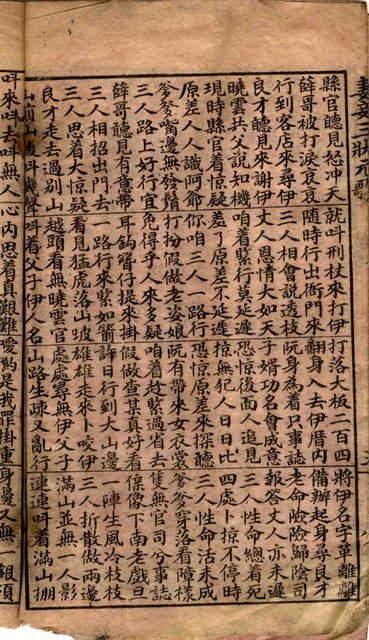 妻妾三狀元歌
縣官聽見怒冲天 就叫刑杖來打伊 打落大板二百四 將伊名字革離離
薛哥被打淚哀哀 隨時行出衙門來 翻身入去伊厝内 備辦起身尋良才
行到客店來尋伊 三人相會説透枝 阮身為着只事誌 老命險險歸陰司
良才聽見來謝伊 丈人恩情大如天 子婿功名會成意 報答丈人亦未遲
曉雲共父説知機 咱着緊行莫延遲 恐惊後面人追見 三人性命總着死
現時縣官着惊疑 差了原差不延遲 掠無犯人日日比 四處卜掠不停時
原差人人識阿爺 你咱三人一路行 恐惊原差來探聽 三人性命活未成
爹爹嘴邊無發鬚 打扮假做老婆娘 阮有帶來女衣裳 爹爹穿落看障樣
三人路上好行宜 免得乎人來多疑 咱着趕緊過省去 隻無官司分事誌
薛哥聽見有意帶 耳鈎簪仔提來掛 假做查某真好看 像下南老戲旦
三人相招出門去 一路行來緊如箭 許日行到大山邊 一陣生風冷枝枝
三人思着大惊疑 看見猛虎落山坡 雄雄走來卜咬伊 三人折散做兩邊
良才走去過別山 越頭看無曉雲官 處處尋無伊父子 滿山並無一人影
山前山後叫幾聲 叫着父子伊人名 山路生疎又亂行 連連叫着滿山棚
叫來叫去叫無人 心内思着真艱難 約是我罪掛重 身邊又無一銀項